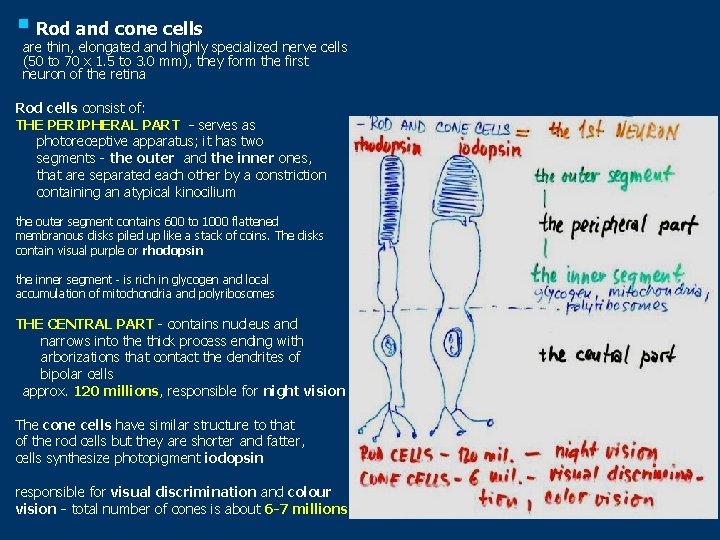 Rod and cone cells
are thin, elongated and highly specialized nerve cells
(50 to 70 x 1.5 to 3.0 mm), they form the first
neuron of the retina
Rod cells consist of:
THE PERIPHERAL PART - serves as
photoreceptive apparatus; it has two
segments - the outer and the inner ones,
that are separated each other by a constriction
containing an atypical kinocilium
the outer segment contains 600 to 1000 flattened
membranous disks piled up like a stack of coins. The disks
contain visual purple or rhodopsin
the inner segment - is rich in glycogen and local
accumulation of mitochondria and polyribosomes
THE CENTRAL PART - contains nucleus and
narrows into the thick process ending with
arborizations that contact the dendrites of
bipolar cells
approx. 120 millions, responsible for night vision
The cone cells have similar structure to that
of the rod cells but they are shorter and fatter,
cells synthesize photopigment iodopsin
responsible for visual discrimination and colour
vision - total number of cones is about 6-7 millions
- ROD AND CONE CELLS = the 1st NEURON
rhodopsin iodopsin
the outer segment
the peripheral part
the inner segment
glycogen, mitochondria,
polyribosomes
the central part
ROD CELLS - 120 mil. - night vision
CONE CELLS - 6 mil. - visual discrimina-
tion, color vision